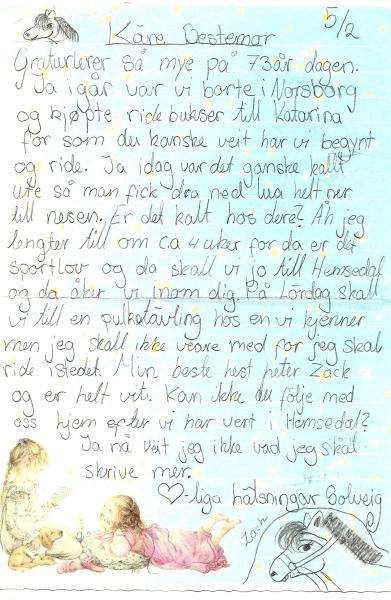 5/2
Käre Bestemor
Graturlerer så mye på 73år dagen.
Ja i går var vi borte i Norsborg
og kjøpte ride bukser till Katarina
for som du kanske veit har vi begynt
og ride. Ja idag var det ganske kallt
ute så man fick dra ned lua helt ner
till nesen. Er det kalt hos dere? Åh jeg
lengter till om c.a 4 uker for da er det
sportlov og da skall vi jo till Hemsedal
og da åker vi inom dig. På Lördag skall
vi till en pulketävling hos en vi kjenner
men jeg skall ikke veare med for jeg skal
ride istedet. Min beste hest heter Zack
og er helt vit. Kan ikke du følje med
oss hjem efter vi har vert i Hemsedal?
Ja nå veit jeg ikke vad jeg skal
skrive mer.
♡-liga hälsningar Solveig
Zack